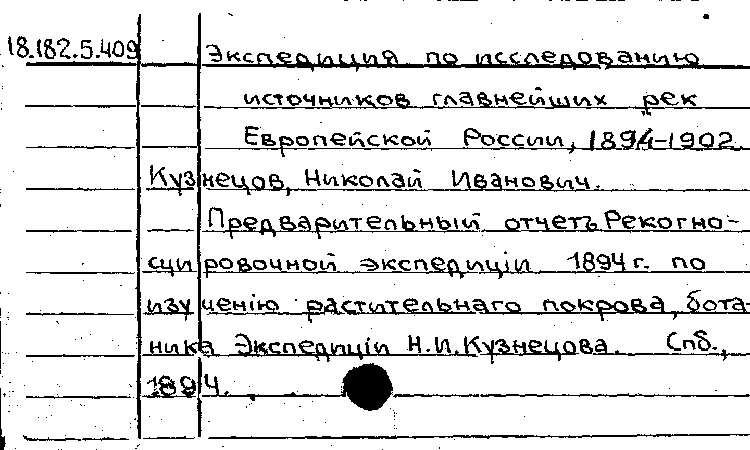 18.182.5.409 Экспедиция по исследованию
источников главнейших рек
Европейской России, 1894-1902.
Кузнецов, Николай Иванович.
Предварительный отчетъ Рекогно-
сцировочной экспедиціи 1894 г. по
изученію растительнаго покрова, бота-
ника Экспедиціи Н.И.Кузнецова. Спб.,
1894.